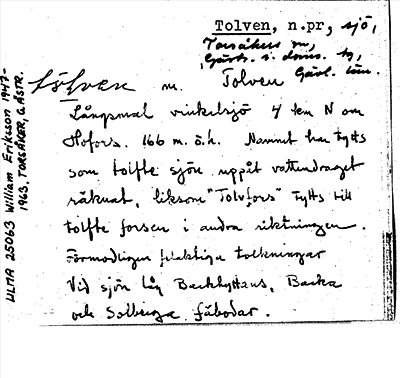 Tolven, n.pr, sjö,
Torsåkers sn,
Gästr. i. doms. bg,
Gävl. län.
m. Tolven
Långsmal vinkelsjö 4 km N om
Hofors. 166 m. ö. h. Namnet har tytts
som tolfte sjön uppåt vattendraget
räknat, liksom "Tolvfors" tytts till
tolfte forsen i andra riktningen.
Förmodligen felaktiga tolkningar
Vid sjön låg Backhyttans, Backa
och Solberga fäbodar.
ULMA 25063 William Eriksson 1947-
1963. TORSÅKER, GÄSTR.